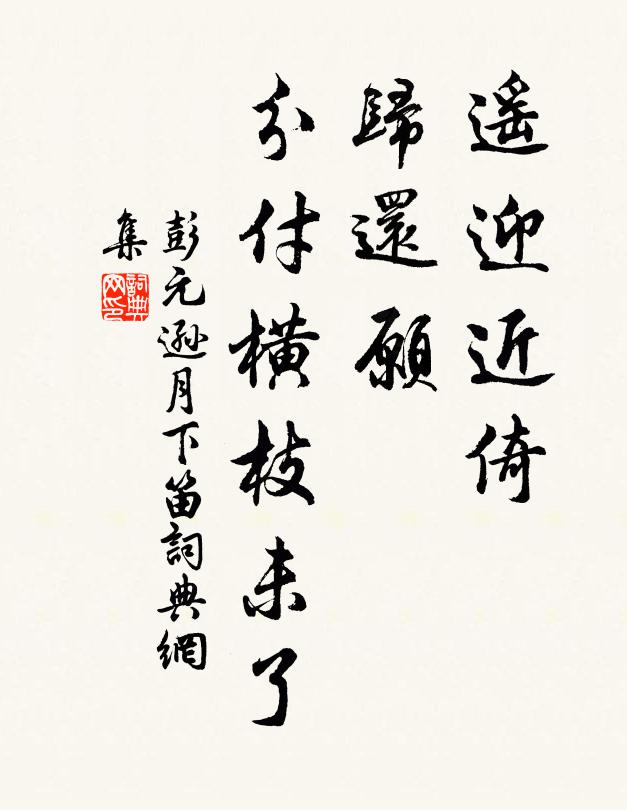 遥迎近倚
歸還願
分付橫枝未了
彭元遜月下笛詞典網
集
詞典
网印